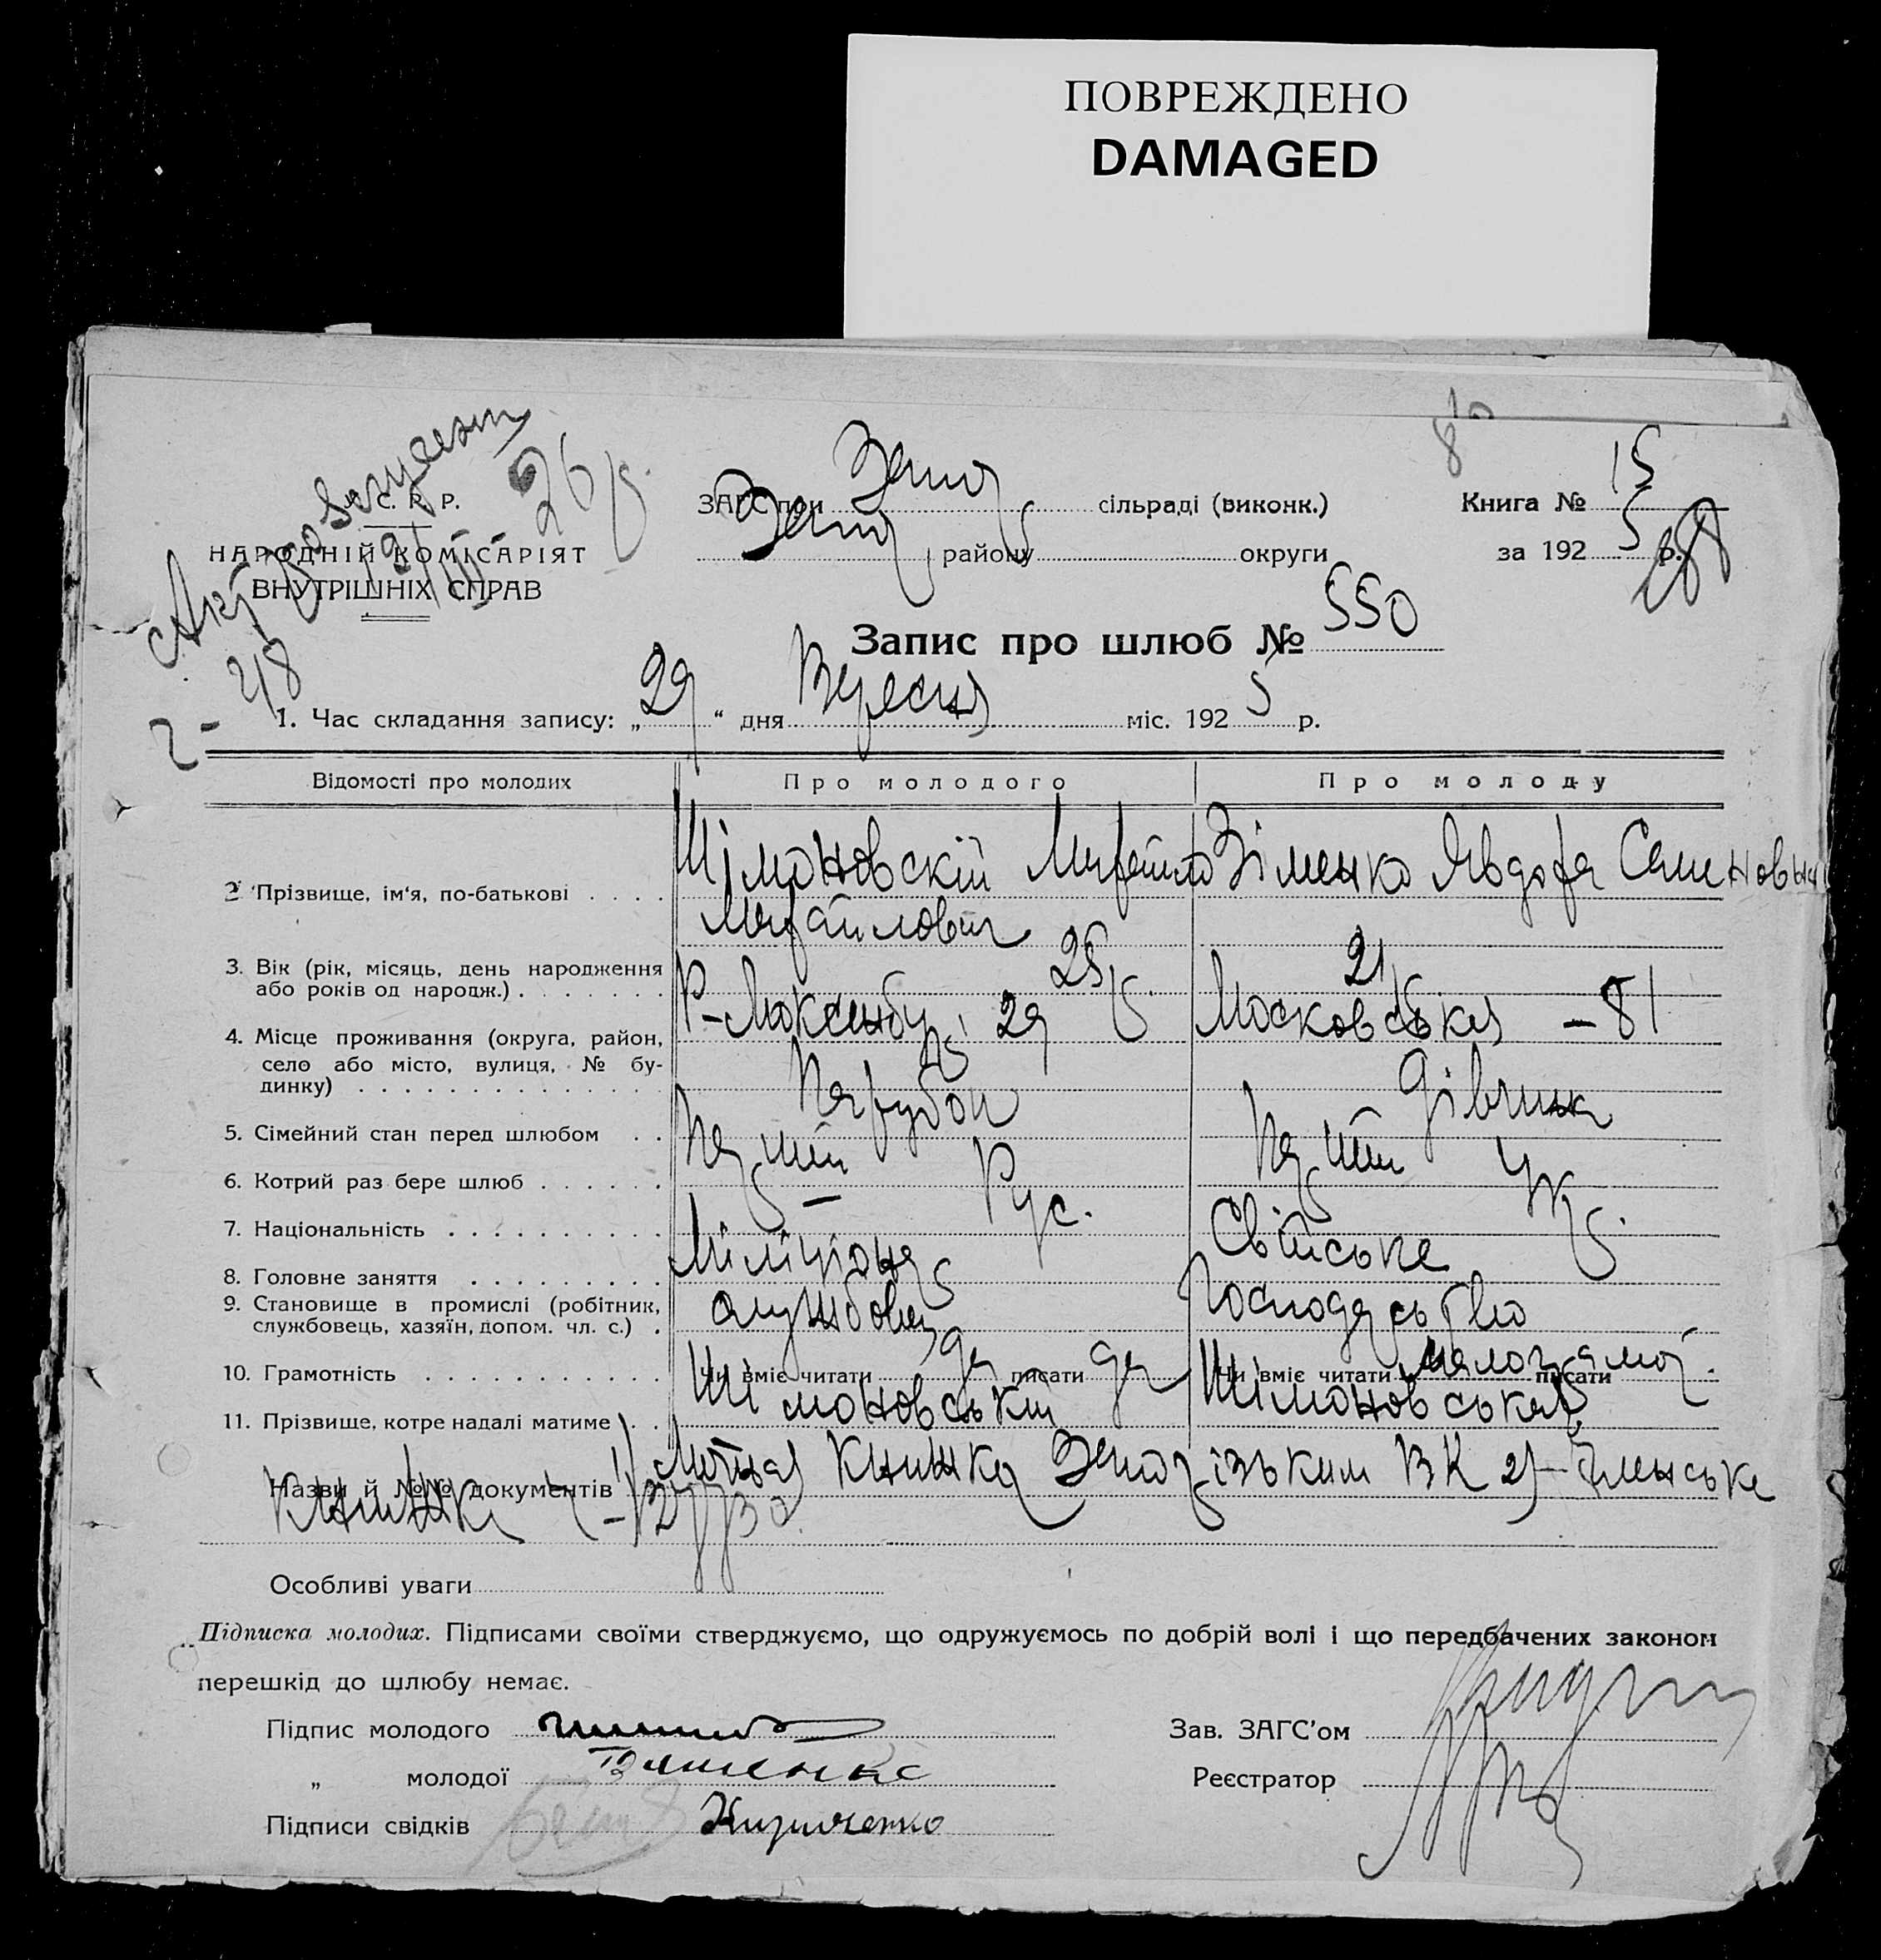 ПОВРЕЖДЕНО
DAMAGED
С. Р. Р.
НАРОДНІЙ КОМІСАРІЯТ
ВНУТРІШНІХ СПРАВ
26 р.
ЗАГС при сільраді (виконк.)
району округи
Книга № 15
за 1925 р.
Запис про шлюб № 550
1. Час складання запису: „29“ дня Вересня міс. 1925 р.
Відомості про молодих Про молодого Про молоду
2. Прізвище, ім‘я, по-батькові . . . . Шімановскій Михайло Зіменко Явдоха Семеновна
Михайлович
3. Вік (рік, місяць, день народження
або років од народж.) . . . . . . . 25 р. 21 р.
4. Місце проживання (округа, район, 29 Московська – 81
село або місто, вулиця, № бу-
динку) . . . . . . . . . . . . .
5. Сімейний стан перед шлюбом . . Парубок Дівчина
6. Котрий раз бере шлюб . . . . . . Перший Перший
7. Національність . . . . . . . . . . Рус. Укр.
8. Головне заняття . . . . . . . . . Міліціонер Свійське
9. Становище в промислі (робітник,
службовець, хазяїн, допом. чл. с.) . службовец Господарьство
10. Грамотність . . . . . . . . . . . Чи вміє читати да писати да Чи вміє читати малограмот. писати
11. Прізвище, котре надалі матиме . . Шімановський Шімановськая
Назви й №№ документів книжка ВК 2) Членське
книжка
Особливі уваги
Підписка молодих. Підписами своїми стверджуємо, що одружуємось по добрій волі і що передбачених законом
перешкід до шлюбу немає.
Підпис молодого
„ молодої
Підписи свідків Кириченко
Зав. ЗАГС’ом
Реєстратор